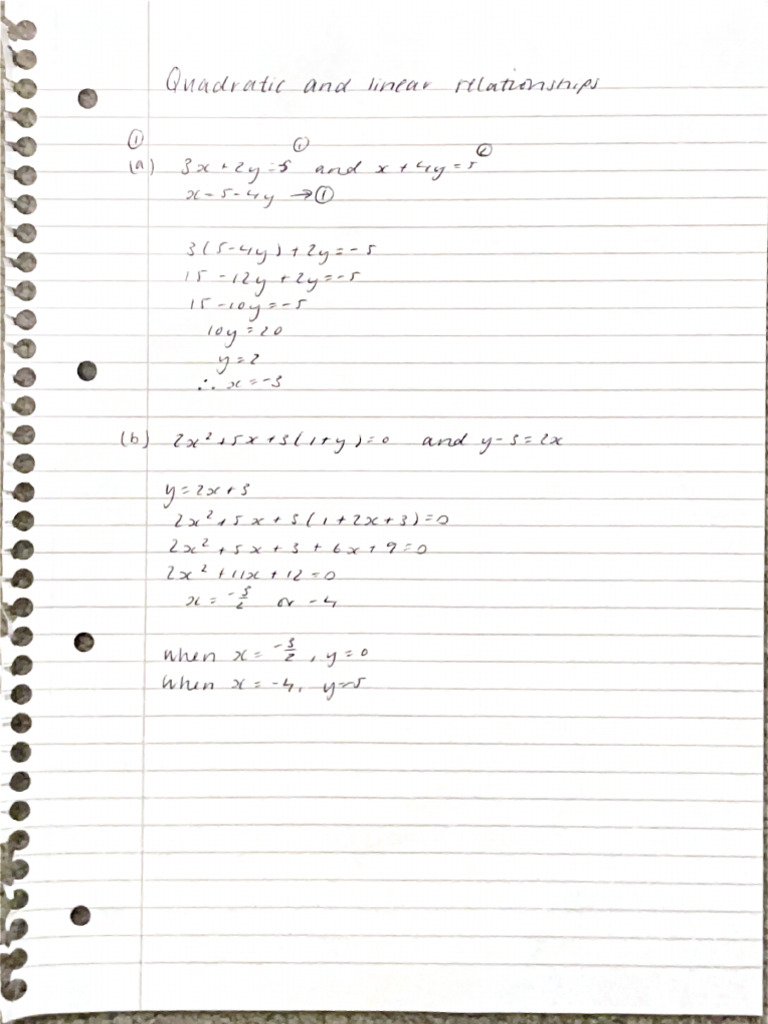 Quadratic and linear relationships
①
(a) 3x + 2y = -5 ① and x + 4y = 5 ②
x = 5 - 4y → ①
3(5-4y) + 2y = -5
15 - 12y + 2y = -5
15 - 10y = -5
10y = 20
y = 2
∴ x = -3
(b) 2x² + 5x + 3(1+y) = 0 and y - 3 = 2x
y = 2x + 3
2x² + 5x + 3(1 + 2x + 3) = 0
2x² + 5x + 3 + 6x + 9 = 0
2x² + 11x + 12 = 0
x = -3/2 or -4
When x = -3/2, y = 0
When x = -4, y = -5